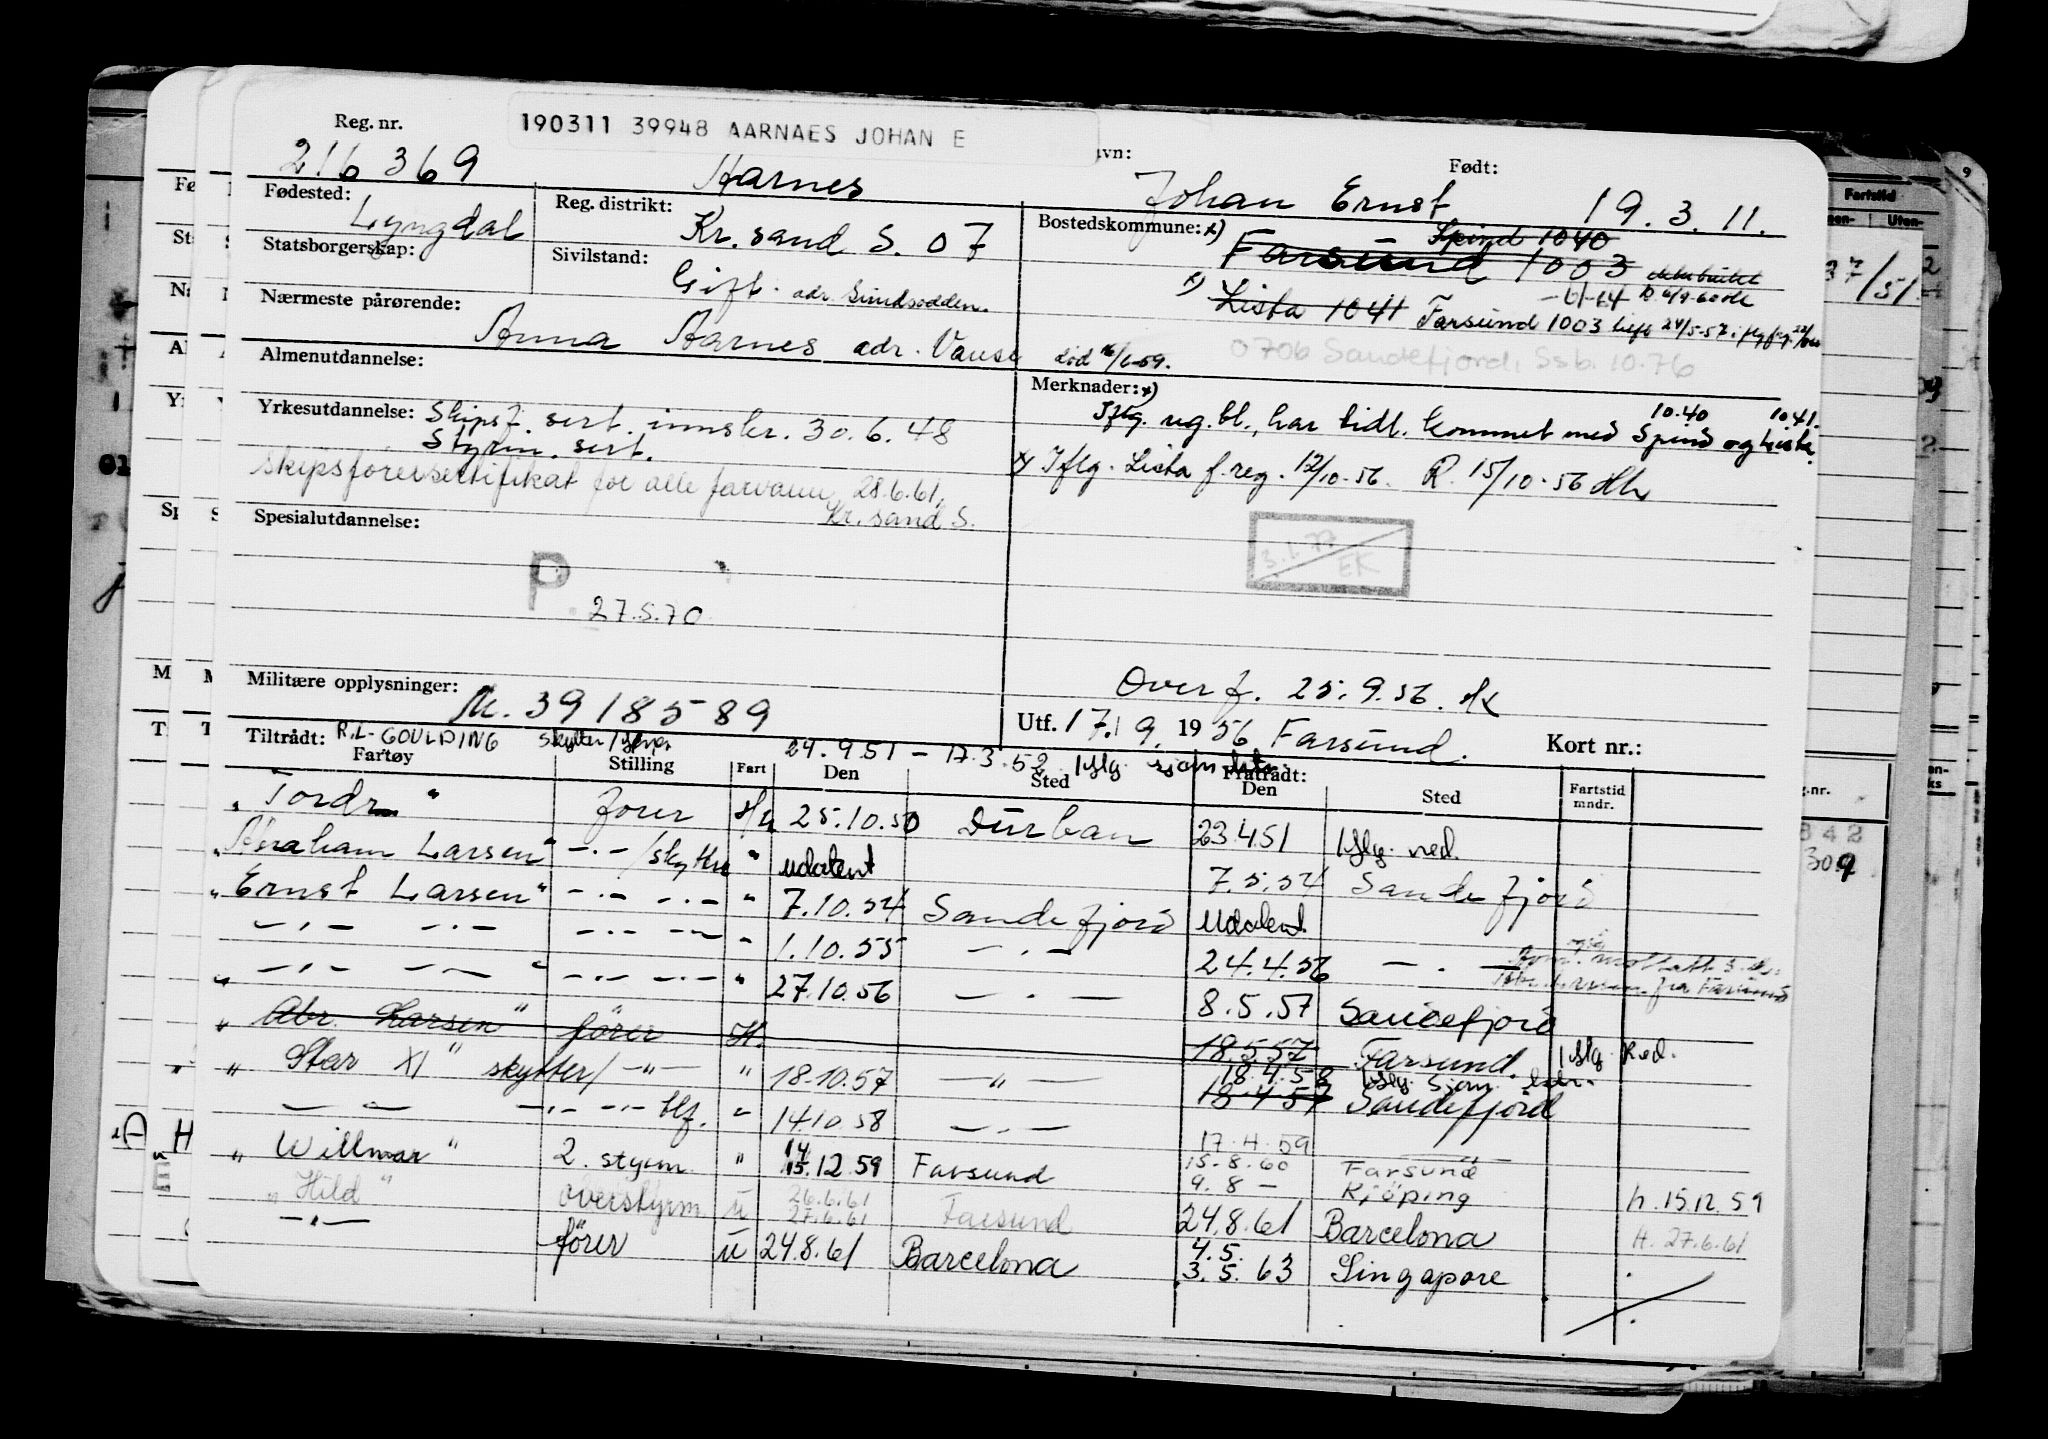 190311 39948 AARNAES JOHAN E
Reg. nr. vn: Født:
216369 Aarnes Johan Ernst 19.3.11.
Fødested: Lyngdal Reg. distrikt: Kr. sand S. 07 Bostedskommune: x) Spind 1040
Farsund 1003
Statsborgerskap: Sivilstand: Gift. adr. Sundsodden.
x) Lista 1041 Farsund 1003
Nærmeste pårørende: Anna Aarnes adr. Vanse død 16/6-59.
0706 Sandefjord, Ssb. 10.76
Almenutdannelse: Merknader: x)
10.40 10.41.
Iflg. rug.bl., har tidl. kommet med Spind og Lista.
Yrkesutdannelse: Skipsf. sert. innskr. 30.6.48
Styrm. sert.
x) Iflg. Lista f.reg. 12/10-56. R. 15/10-56
skipsførersertifikat for alle farvann, 28.6.61,
Kr. sand S.
Spesialutdannelse:
3.1.77
EK
P.
27.5.70
Militære opplysninger: M. 3918589
Overf. 25.9.56.
Utf. 17.9. 1956 Farsund. Kort nr.:
Tiltrådt: R.L-GOULDING skytter/ 24.9.51 - 17.3.52 iflg.
Fratrådt:
Fartøy Stilling Fart Den Sted Den Sted Fartstid mndr.
" " fører 25.10.50 Durban 23.4.51 iflg. red.
"Abraham Larsen" -.- /skytter " udatert 7.5.54 Sandefjord
"Ernst Larsen" -.- -.- " 7.10.54 Sandefjord udatert
-.- -.- -.- -.- " 1.10.55 -.- 24.4.56 -.-
" -.- -.- " -.- -.- " 27.10.56 -.- 8.5.57 Sandefjord
" Abr. Larsen " fører H. 18.5.57 Farsund. iflg. Red.
" Star XI " skytter/ -"- " 18.10.57 -"- 18.4.58
18.4.57 Sandefjord
- - -.- -.- " 14.10.58 -.- 17.4.59
" Willmar " 2. styrm. " 14
15.12.59 Farsund 15.8.60 Farsund
9.8 - Kjöping h. 15.12.59
" Hild " overstyrm u 26.6.61
27.6.61 Farsund 24.8.61 Barcelona H. 27.6.61
-"- fører u 24.8.61 Barcelona 4.5.
3.5.63 Singapore
Fartstid
37/51
309